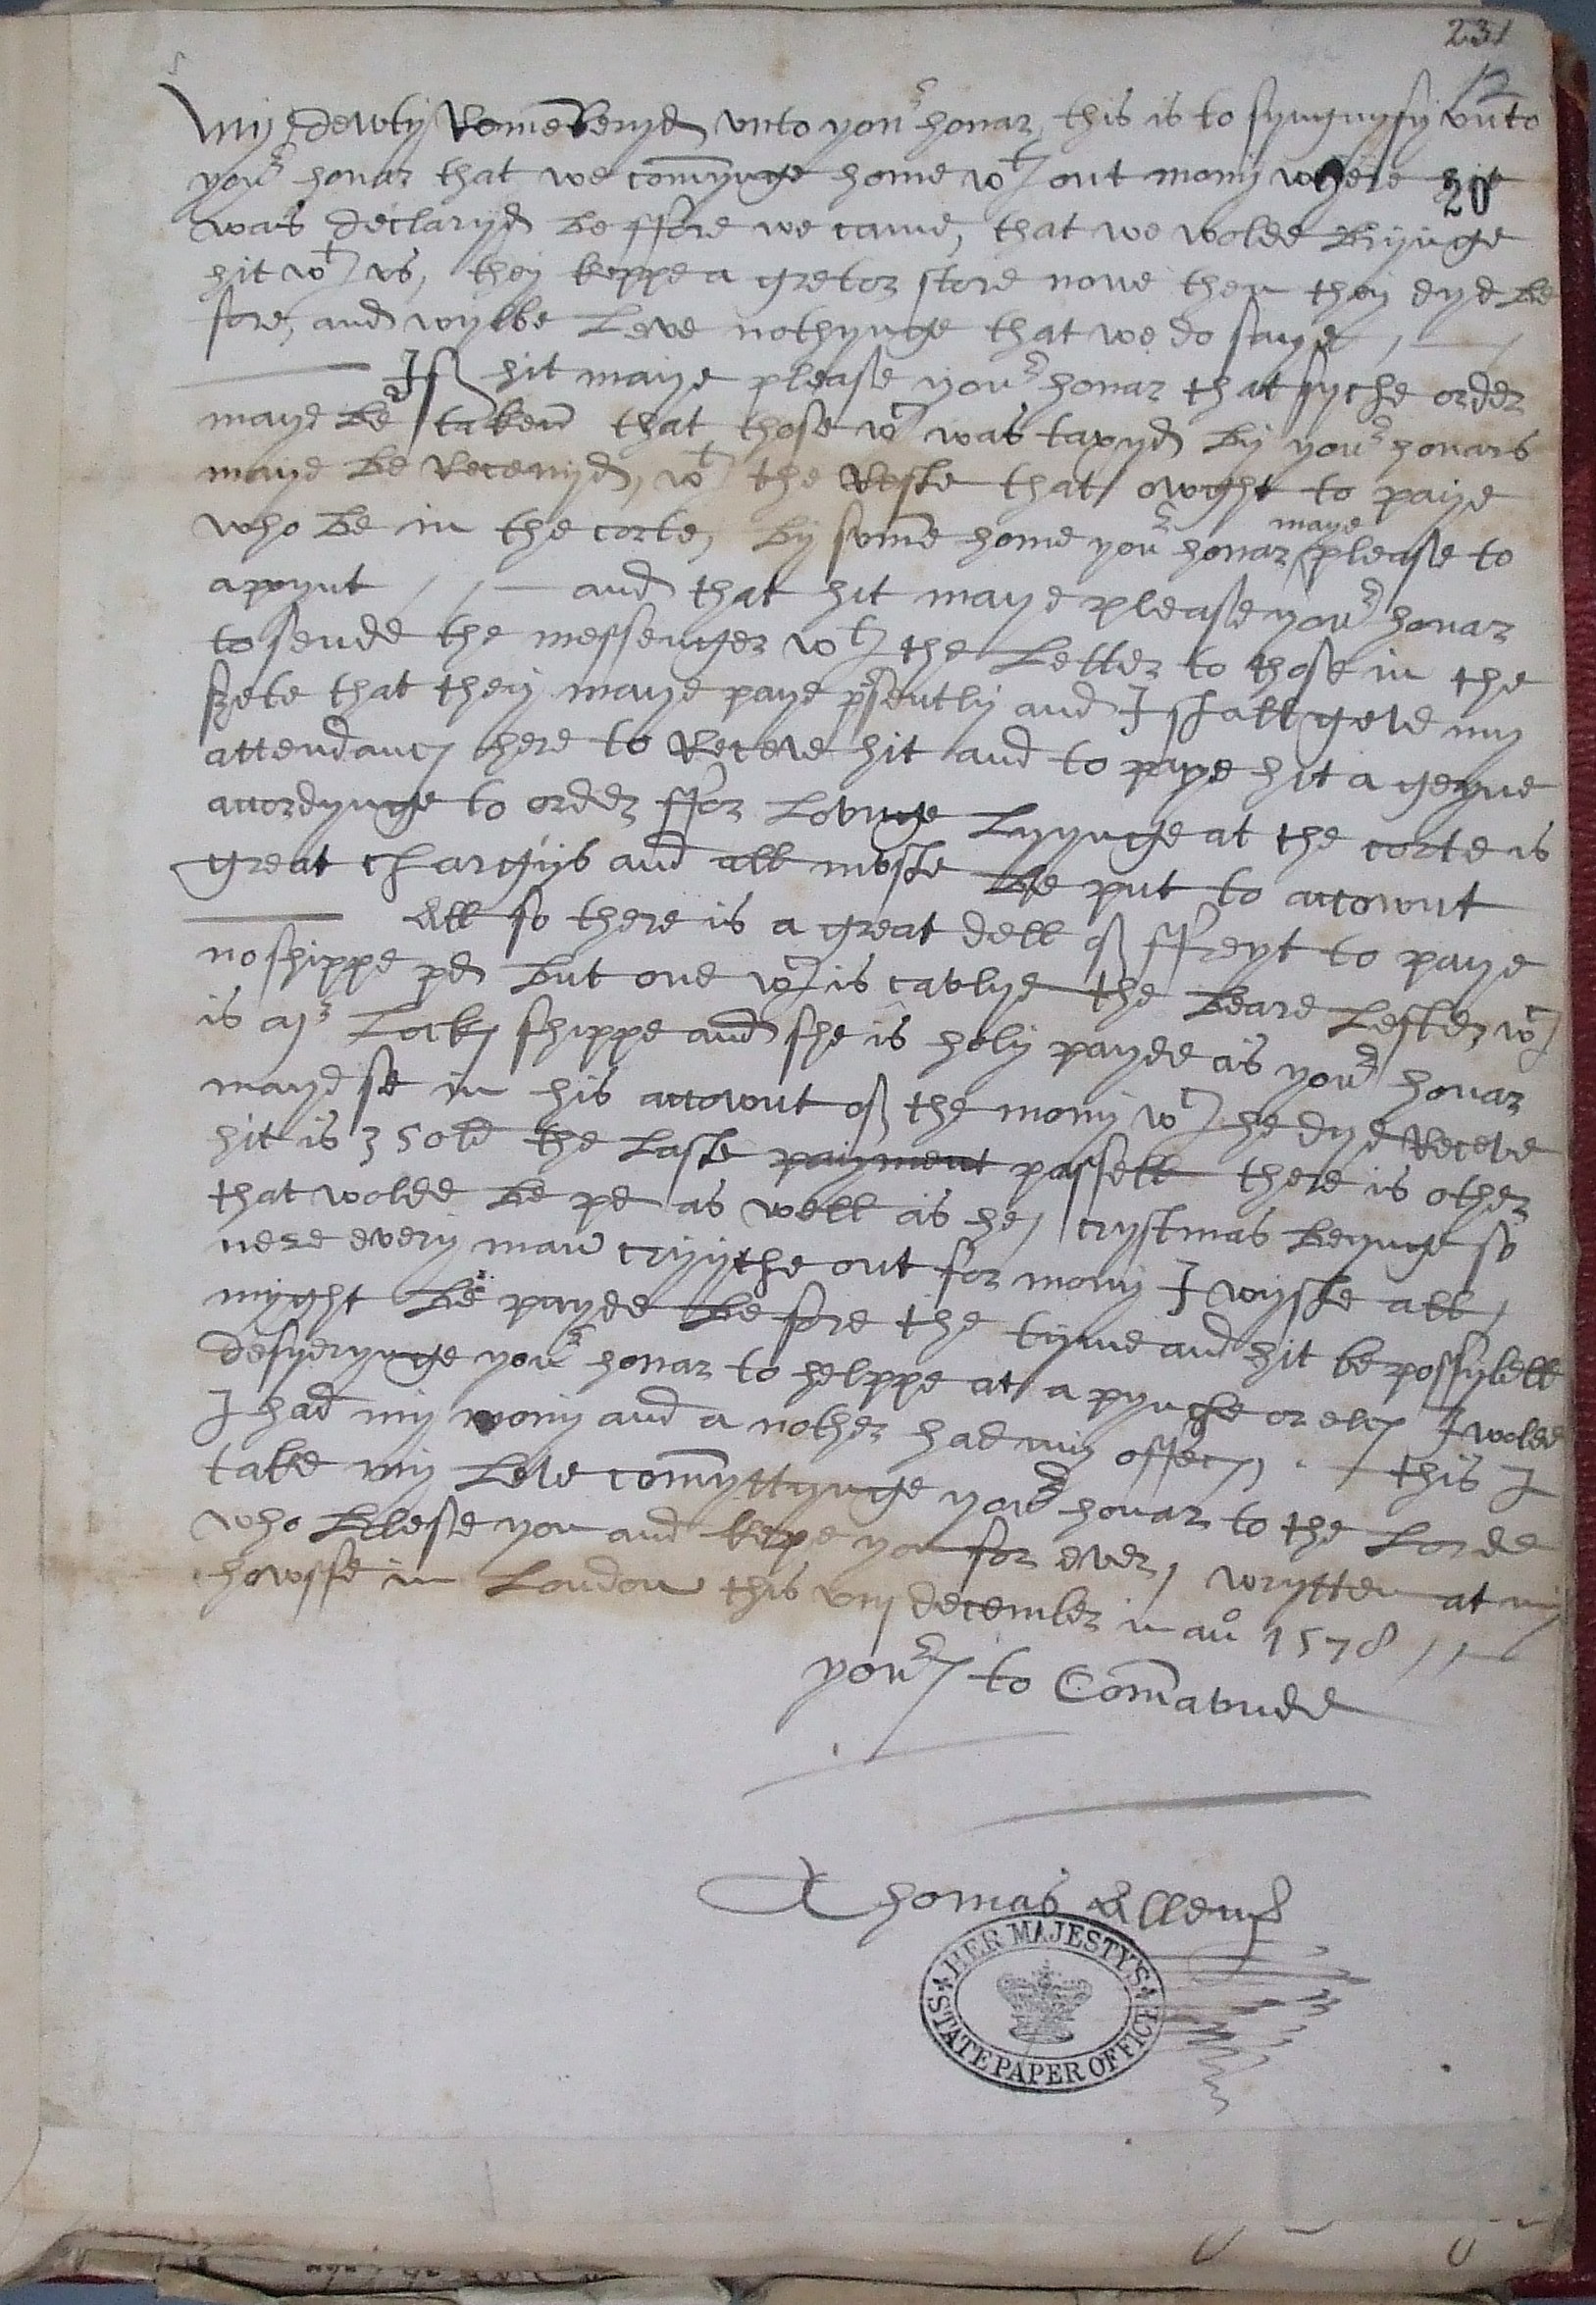 231
12
My dewty Remembryd unto your honar this is to syngnyfy unto
your honar that we commynge home wth out mony where hit
20
was declaryd be ffore we came, that we wolde brynge
hit wth us, they keppe a gretor store nowe then they dyd be
fore, and wylbe leve nothynge that we do saye,
If hit maye please your honar that syche order
maye be taken that those wch was taxyd by your honars
maye be Receavyd, wth the Reste that owght to paye
who be in the corte, by somme home your honar maye please to
apoynt and that hit maye please your honar
to sende the messenger wth the Letter to those in the
syete that they maye paye presently and I shall geve my
attendance here to Receve hit and to paye hit a geyne
accordynge to order ffor Longe Lyynge at the corte is
great chargys and all moste be put to accownt
All so there is a great dell of ffreyt to paye
no shippe pd but one wch is caulyd the Beare Lester wch
is mr Lockes shippe and she is holy payde as your honar
maye se in his accownt of the mony wch he dyd Receve
hit is 350ld the Laste payment parssell there is other
that wolde be pd as well as he, crystmas beynge so
nere every man cryythe out for mony I wyshe all
myght be payde be fore the tyme and hit be possybell
desyerynge your honar to helppe at a pynche or elles I wolde
I had my mony and a nother had my offece, this I
take my Leve commyttynge your honar to the Lorde
who blesse you and kepe you for ever, wrytten at my
howsse in London this viij december in ano 1578
yours to Commaunde
Thomas Allen
HER MAJESTY'S
STATE PAPER OFFICE